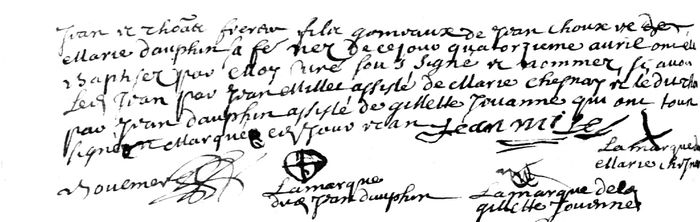 Jean et Thomas freres fils gemeaux de Jean Choux et de
Marie dauphin sa fe nez de ce jour quatorzieme avril ont été
Baptisez par Moy curé sous signé et nommez sçavoir
Led Jean par Jean Millet assisté de Marie Chesnay et led Tho
par Jean dauphin assisté de gillette Jouanne qui ont tous
signé Marque ce jour et an Jean mile
La marque de
Marie Ches
Bouemer
La marque
dud Jean dauphin
La marque de la
gillette Jouanne